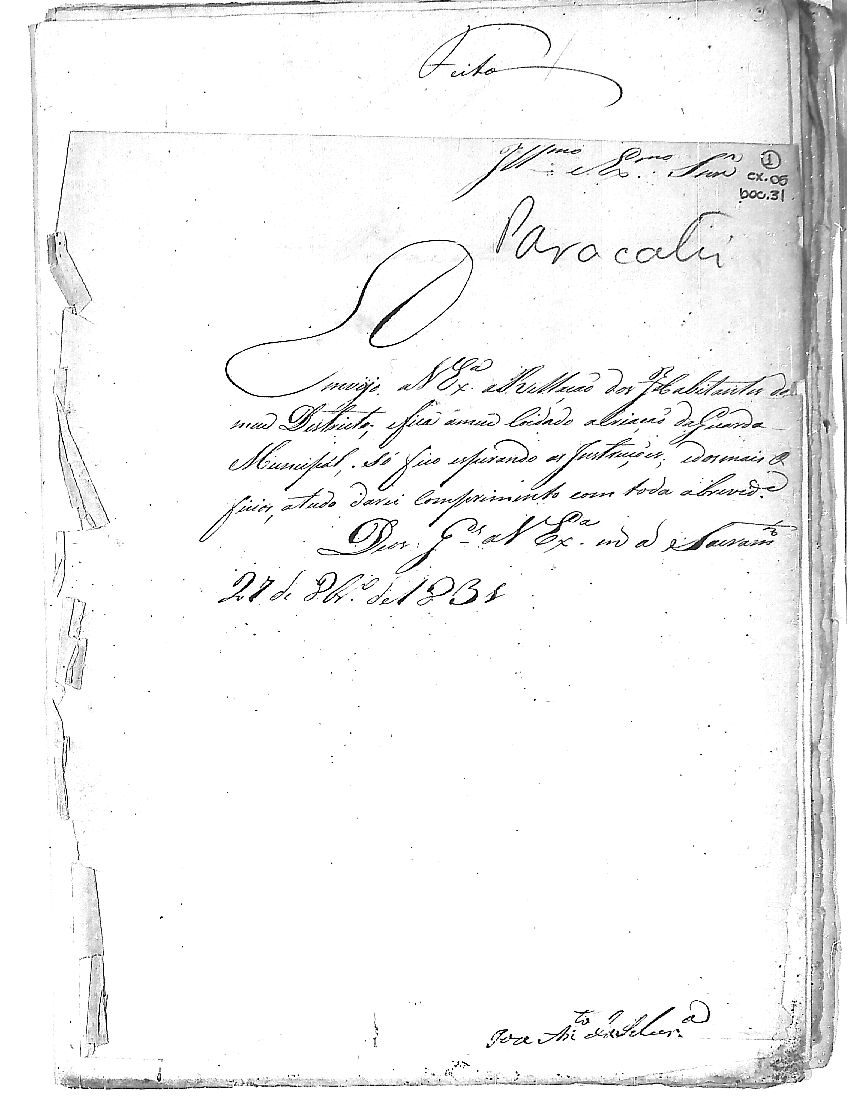 Feito
Ill.mo e Ex.mo Snr
1
cx.06
doc.31
Paracatú
Dirijo a V Ex.a a Rellação dos Habitantes do
meu Districto, e fica ameu Coidado acriação da Guarda
Municipál, Só fico esperando as Instruções, edomais
ficios, atudo darei Comprimento com toda abrevid.e
Deos G.de a V Ex.a m.s a.s Sacram.to
27 de 8br.o de 1831
Joze Ant.o da Silvr.a